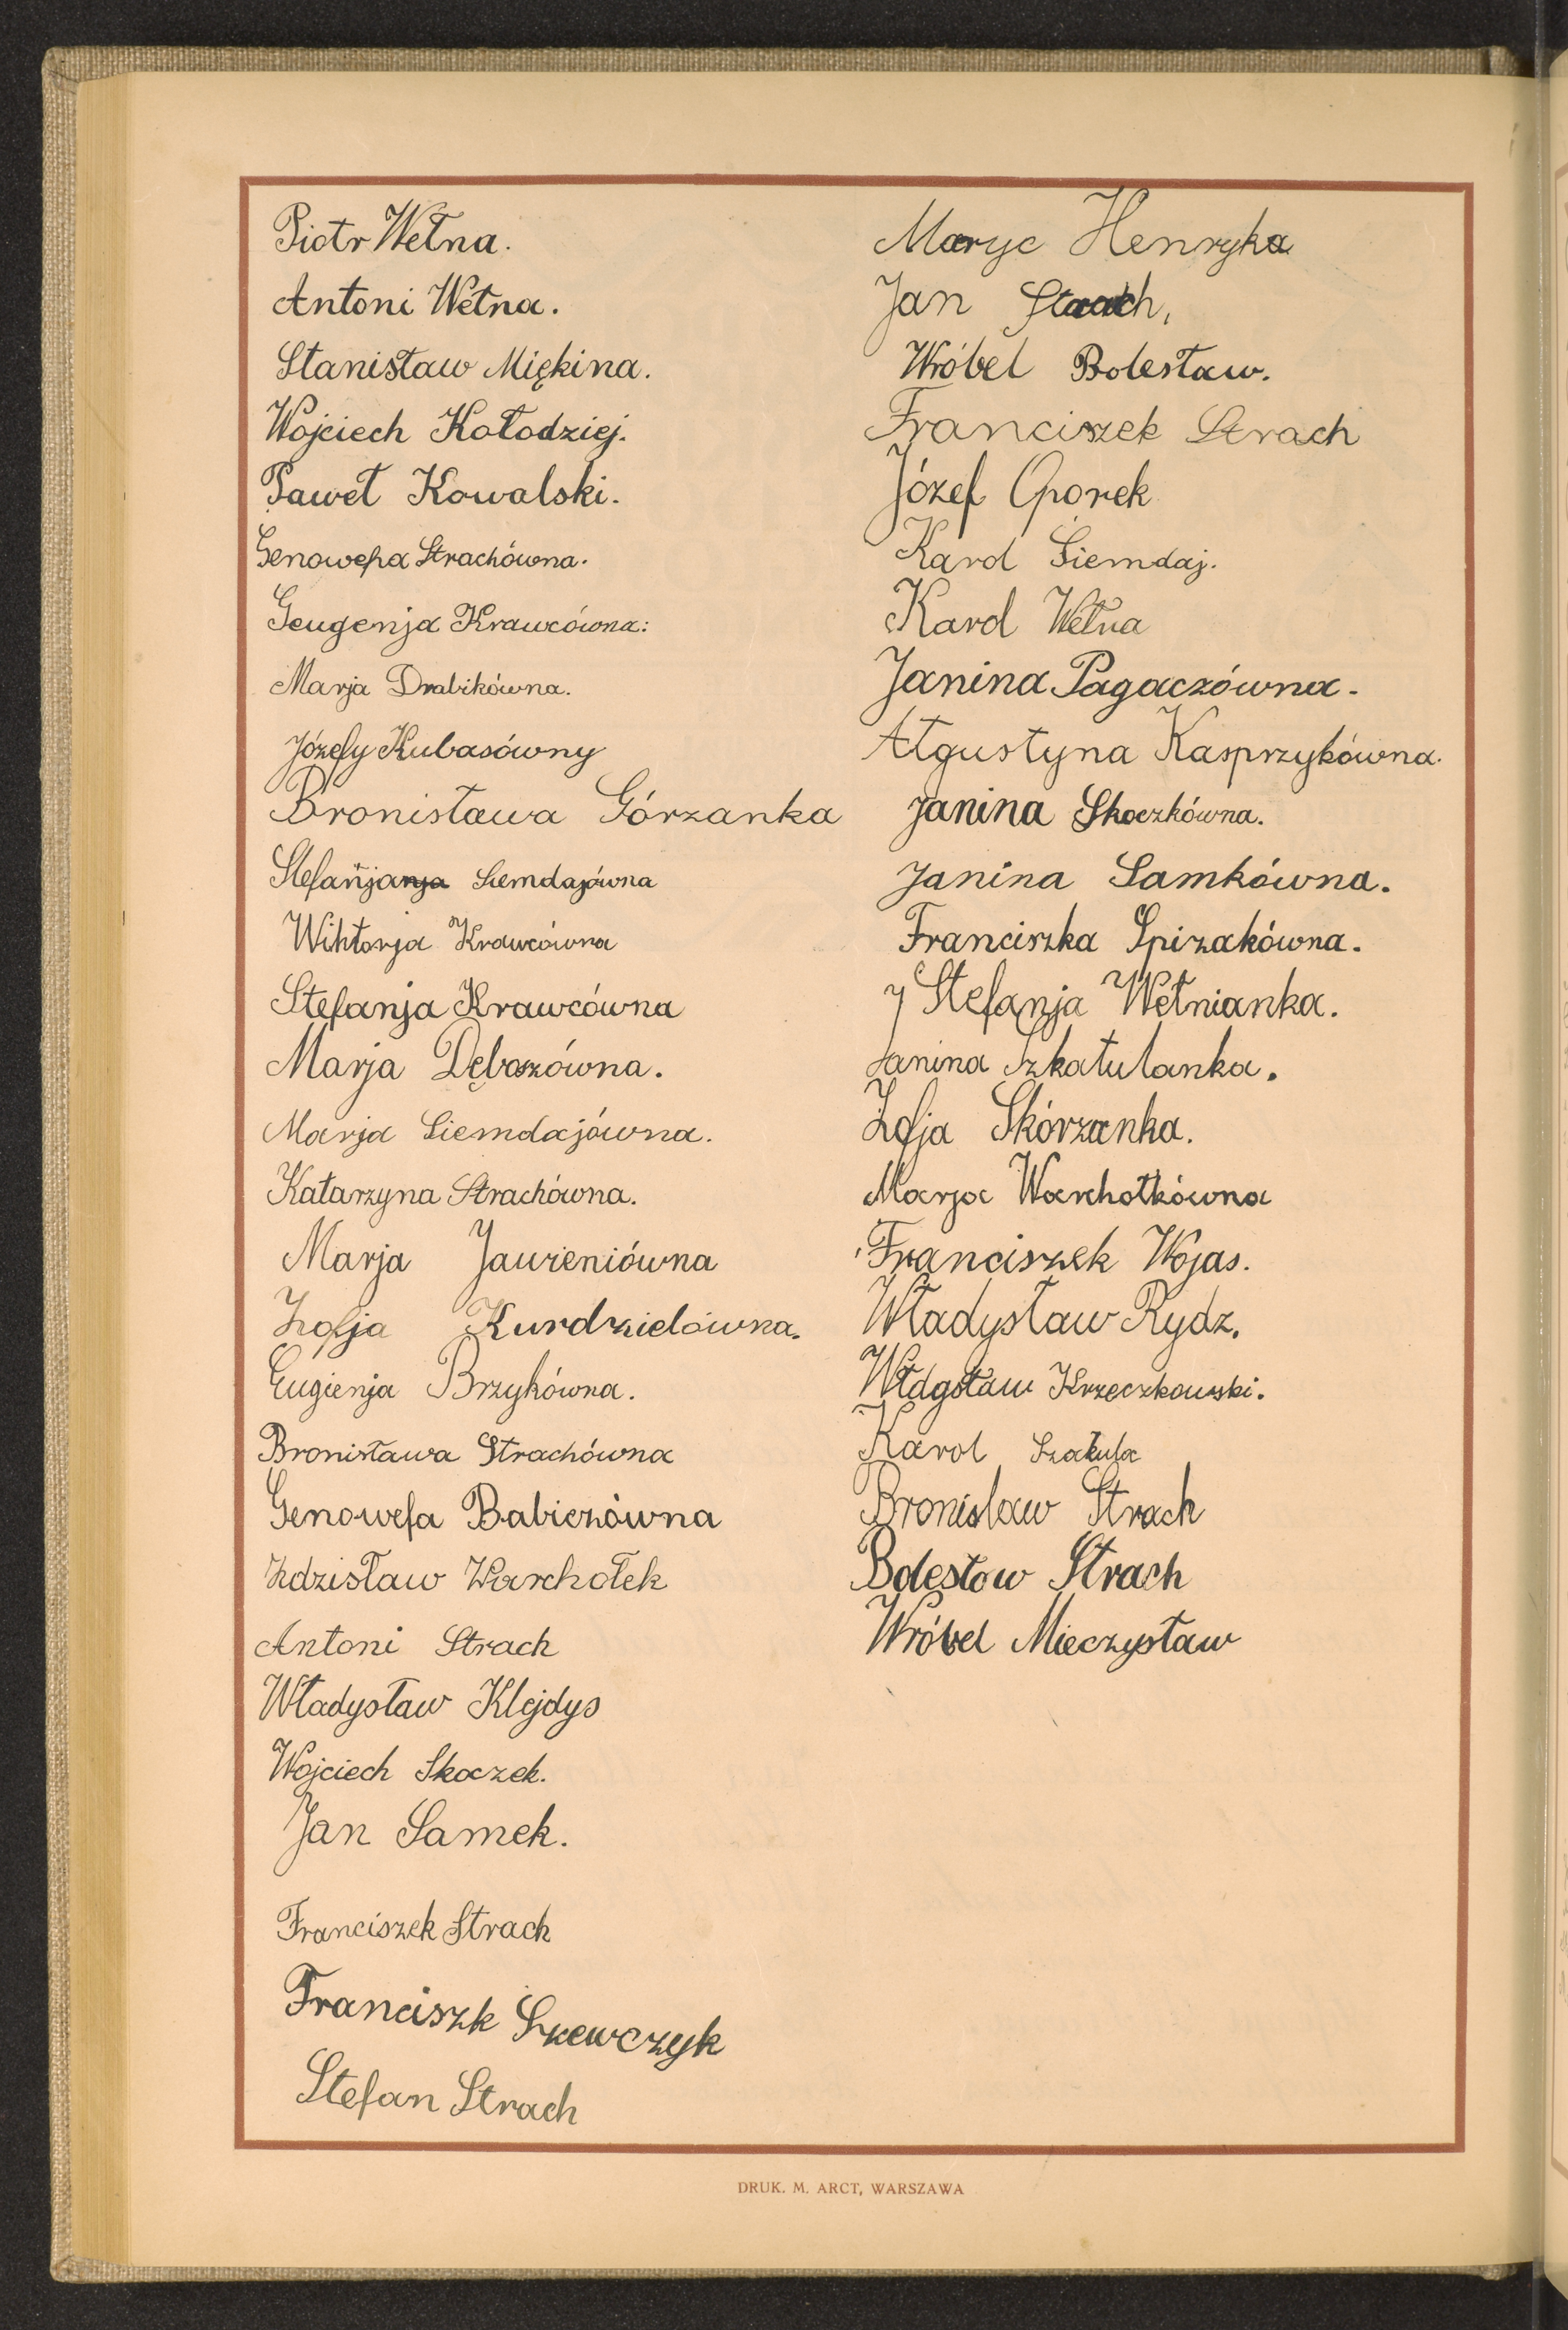 Piotr Wełna.
Antoni Wełna.
Stanisław Miękina.
Wojciech Kołodziej.
Paweł Kowalski.
Genowefa Strachówna.
Geugenja Krawcówna:
Marja Drabikówna.
Józefy Kubasówny
Bronisława Górzanka
Stefanjanja Siemdajówna
Wiktorja Krawcówna
Stefanja Krawcówna
Marja Dęboszówna.
Marja Siemdajówna.
Katarzyna Strachówna.
Marja Jawieniówna
Zofja Kurdzielówna.
Eugienja Brzykówna.
Bronisława Strachówna
Genowefa Babiczówna
Zdzisław Warchołek
Antoni Strach
Władysław Klejdys
Wojciech Skoczek.
Jan Samek.
Franciszek Strach
Franciszk Szewczyk
Stefan Strach
Maryc Henryka
Jan Strach,
Wróbel Bolesław.
Franciszek Strach
Józef Oporek
Karol Siemdaj.
Karol Wełna
Janina Pagaczówna.
Ałgustyna Kasprzykówna.
Janina Skoczkówna.
Janina Samkówna.
Franciszka Spizakówna.
J Stefanja Wełnianka.
Janina Szkatulanka.
Zofja Skórzanka.
Marja Warchołkówna
Franciszek Wojas.
Władysław Rydz.
Włdgsław Krzeczkowski.
Karol Szakula
Bronislaw Strach
Bolesłow Strach
Wróbel Mieczysław
DRUK. M. ARCT, WARSZAWA